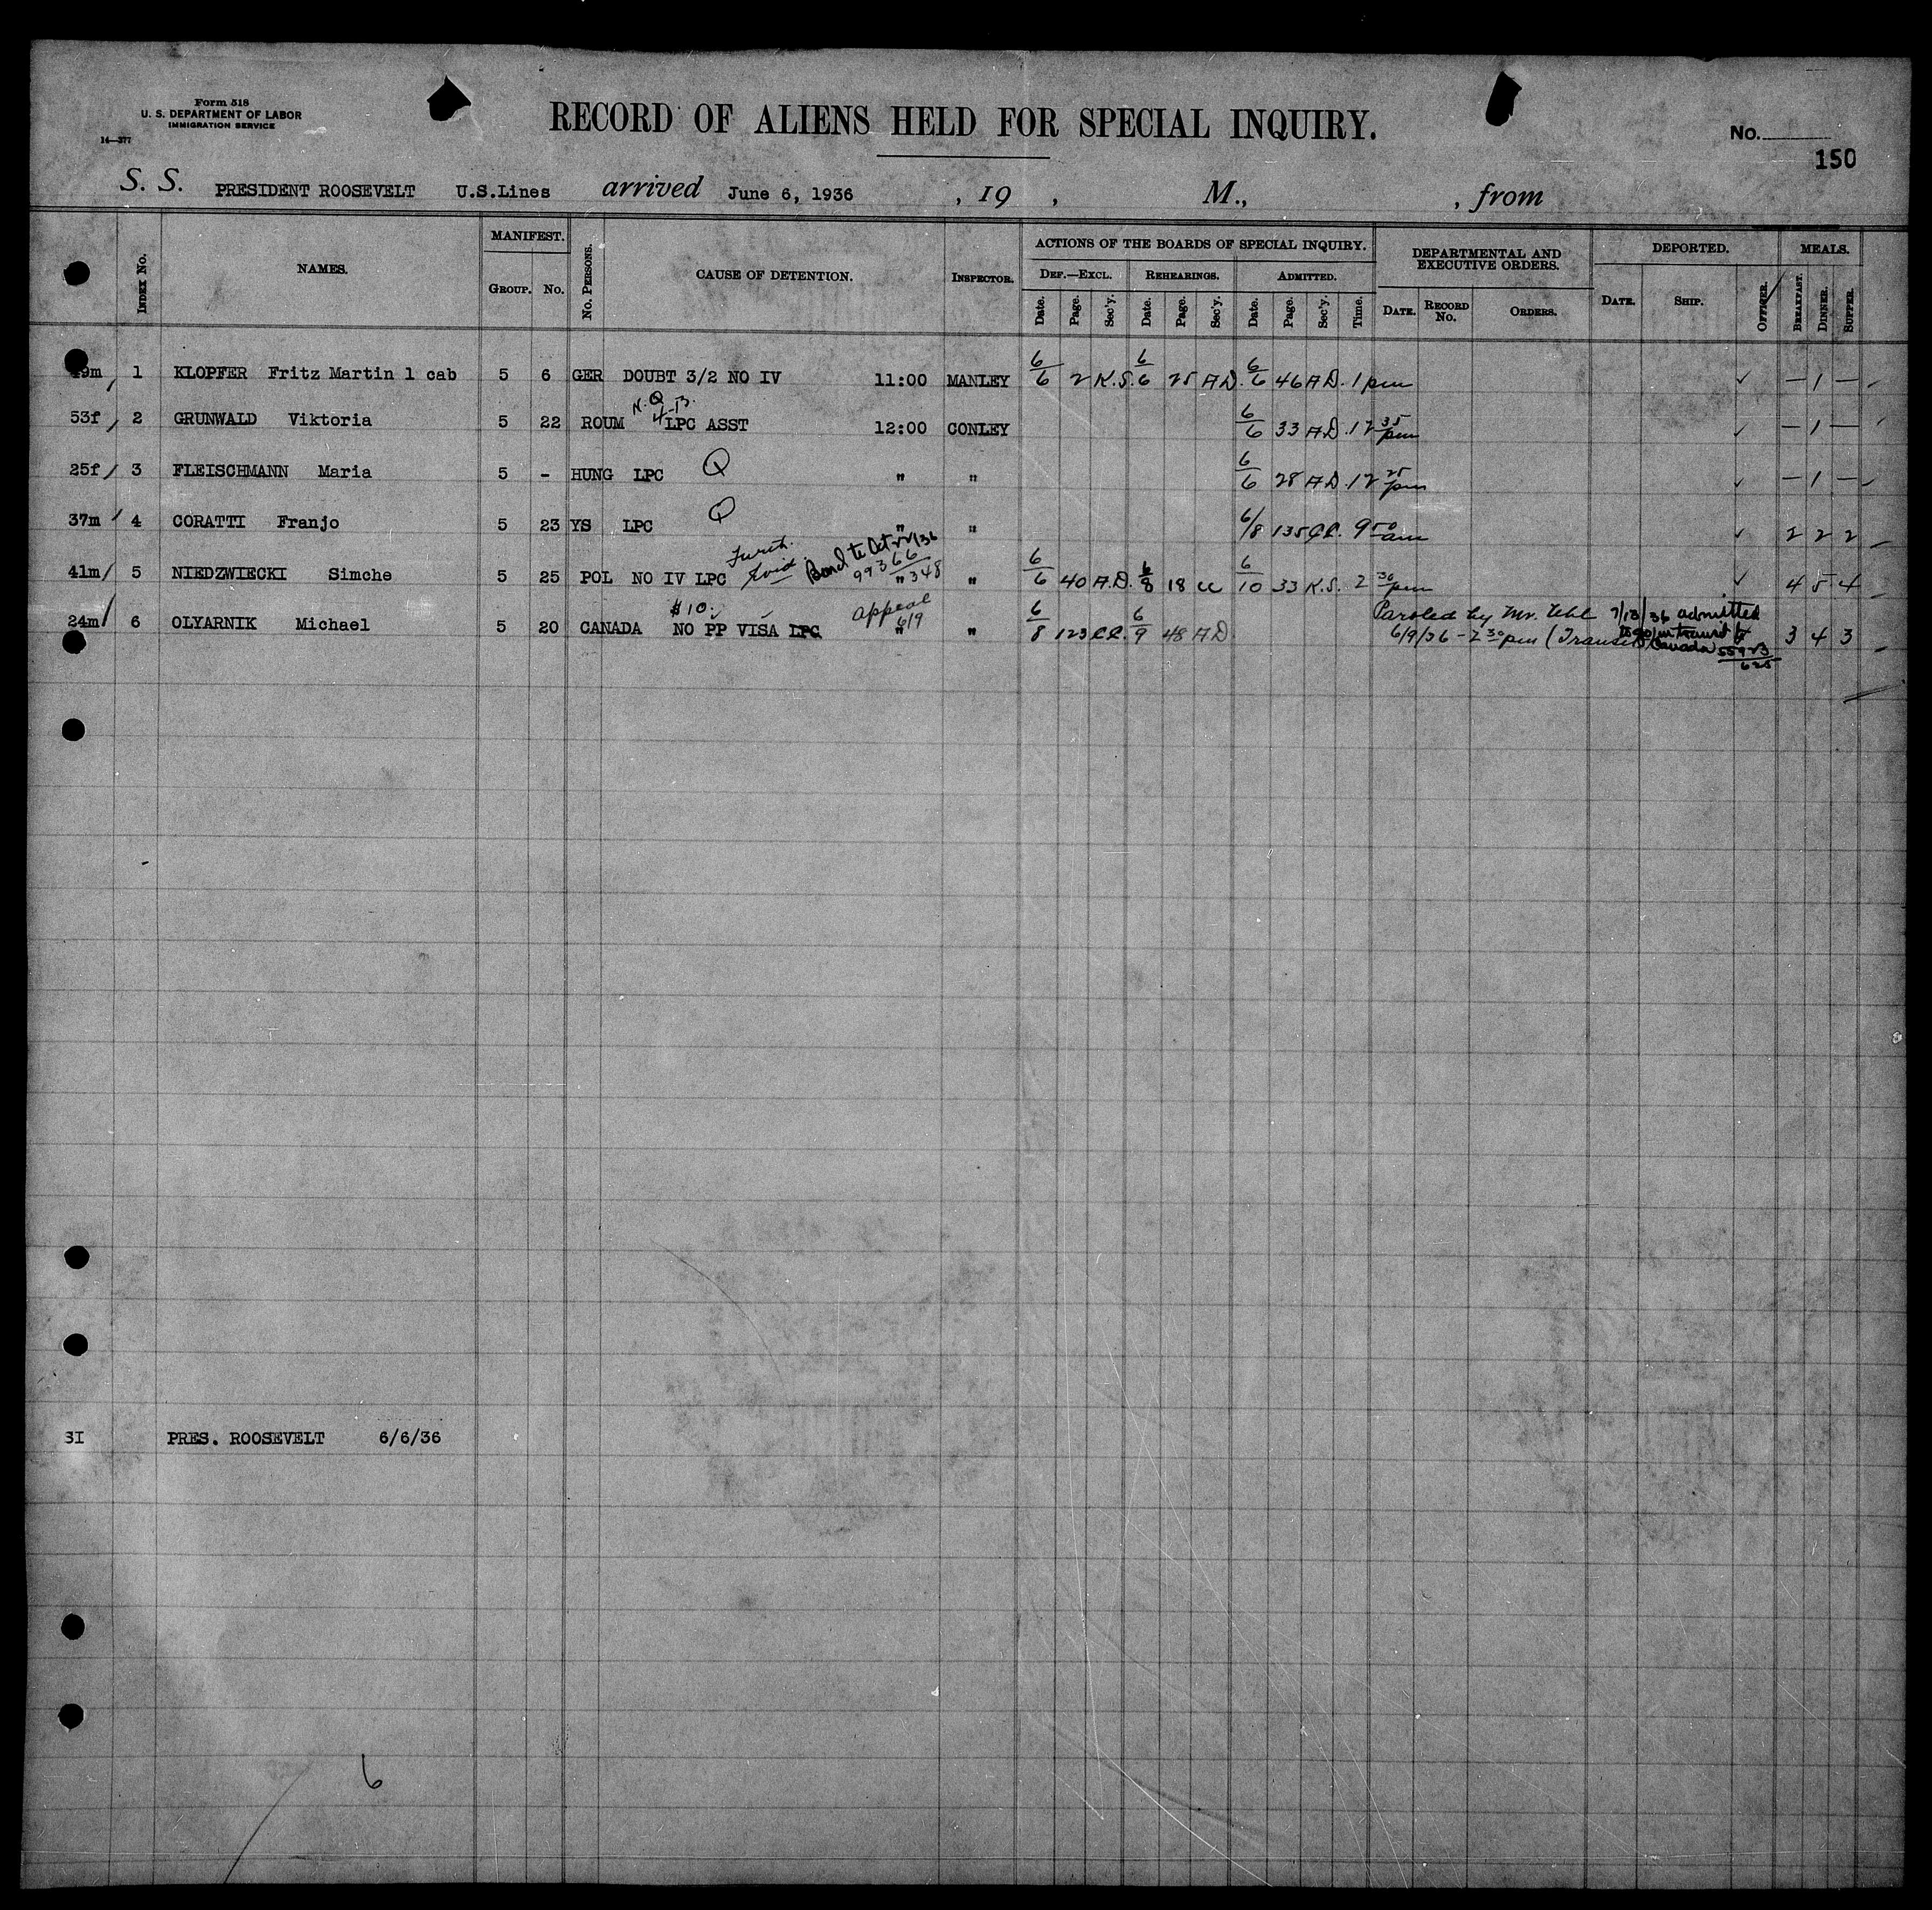 Form 518
U. S. DEPARTMENT OF LABOR
IMMIGRATION SERVICE
14—377
RECORD OF ALIENS HELD FOR SPECIAL INQUIRY.
No.
150
S. S. PRESIDENT ROOSEVELT U.S.Lines arrived June 6, 1936 , 19 , M., , from
INDEX No. NAMES. MANIFEST. GROUP. No. No. PERSONS. CAUSE OF DETENTION. INSPECTOR.
ACTIONS OF THE BOARDS OF SPECIAL INQUIRY.
DEF.—EXCL. REHEARINGS. ADMITTED.
Date. Page. Sec'y. Date. Page. Sec'y. Date. Page. Sec'y. Time.
DEPARTMENTAL AND EXECUTIVE ORDERS.
DATE. RECORD No. ORDERS.
DEPORTED.
DATE. SHIP. OFFICER.
MEALS.
BREAKFAST. DINNER. SUPPER.
9m 1 KLOPFER Fritz Martin 1 cab 5 6 GER DOUBT 3/2 NO IV 11:00 MANLEY 6/6 2 K.S. 6/6 25 A.D. 6/6 46 A.D. 1 pm ✓ — 1 —
53f 2 GRUNWALD Viktoria 5 22 ROUM N.Q. LPC ASST 12:00 CONLEY 6/6 33 A.D. 12 35 pm ✓ — 1 —
25f 3 FLEISCHMANN Maria 5 - HUNG LPC Q " " 6/6 28 A.D. 12 25 pm ✓ — 1 —
37m 4 CORATTI Franjo 5 23 YS LPC Q " " 6/8 135 9 50 am ✓ 2 2 2
41m 5 NIEDZWIECKI Simche 5 25 POL NO IV LPC Bond to Oct 99366/348 " " 6/6 40 A.D. 6/8 18 CC 6/10 33 K.S. 2 30 pm ✓ 4 5 4
24m 6 OLYARNIK Michael 5 20 CANADA $10. NO PP VISA LPC appeal 6/9 " " 6/8 123 6/9 48 A.D. Paroled by Mr. Uhl 7/13/36 admitted
6/9/36 - 2 30 pm (Transit) in transit to Canada 3 4 3
3I PRES. ROOSEVELT 6/6/36
6